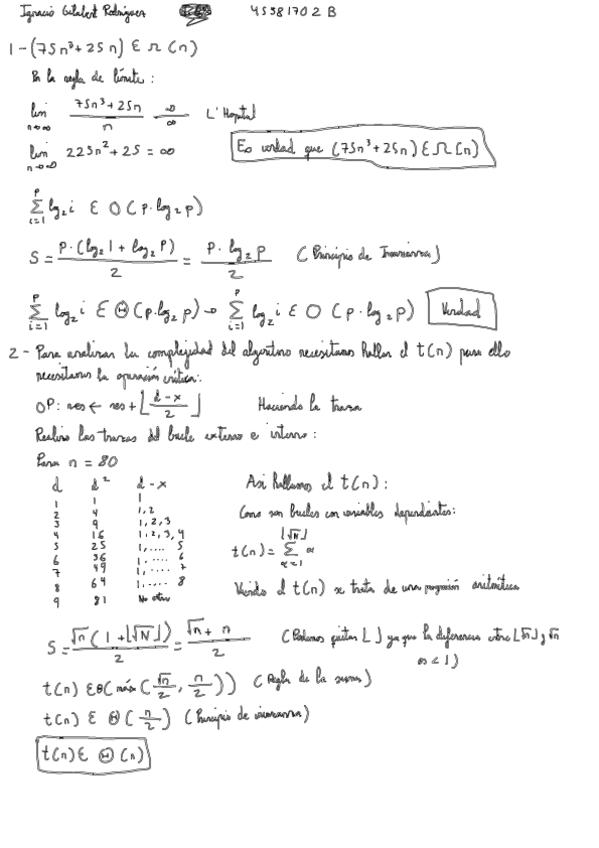 Ignacio Gilabert Rodríguez 45381702 B
1 - (75n³+25n) ∈ Ω(n)
En la regla de límite:
lim n→∞ (75n³+25n)/n ∞/∞ L'Hopital
lim n→∞ 225n²+25 = ∞ Es verdad que (75n³+25n) ∈ Ω(n)
∑_{i=1}^{p} log₂i ∈ O(p·log₂p)
S = p·(log₂1 + log₂p)/2 = p·log₂p/2 (Principio de Invarianza)
∑_{i=1}^{p} log₂i ∈ Θ(p·log₂p) → ∑_{i=1}^{p} log₂i ∈ O(p·log₂p) Verdad
2 - Para analizar la complejidad del algoritmo necesitamos hallar el t(n) para ello
necesitamos la operación crítica:
OP: res ← res + ⌊(d-x)/2⌋ Haciendo la traza
Realizo las trazas del bucle externo e interno:
Para n = 80
d d² d-x Así hallamos el t(n):
1 1 1
2 4 1,2 Como son bucles con variables dependientes:
3 9 1,2,3
4 16 1,2,3,4
5 25 1,.... 5 t(n) = ∑_{x=1}^{⌊√N⌋} x
6 36 1,.... 6
7 49 1,.... 7
8 64 1,..... 8 Viendo el t(n) se trata de una progresión aritmética
9 81 No entra
S = √n(1+⌊√N⌋)/2 = (√n + n)/2 (Podemos quitar ⌊ ⌋ ya que la diferencia entre ⌊√n⌋ y √n
es < 1)
t(n) ∈ Θ(máx(√n/2, n/2)) (Regla de la suma)
t(n) ∈ Θ(n/2) (Principio de invarianza)
t(n) ∈ Θ(n)